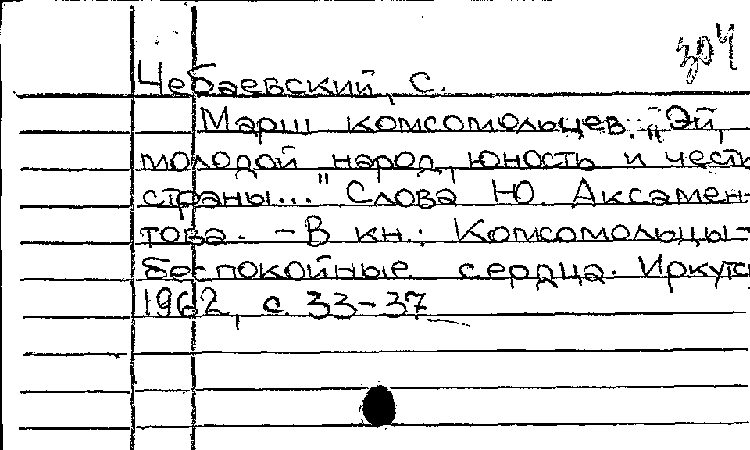 304
Чебаевский, С.
Марш комсомольцев. „Эй,
молодой народ, юность и честь
страны..." Слова Ю. Аксамен-
това. - В кн.: Комсомольцы-
беспокойные сердца. Иркутс
1962, с. 33-37